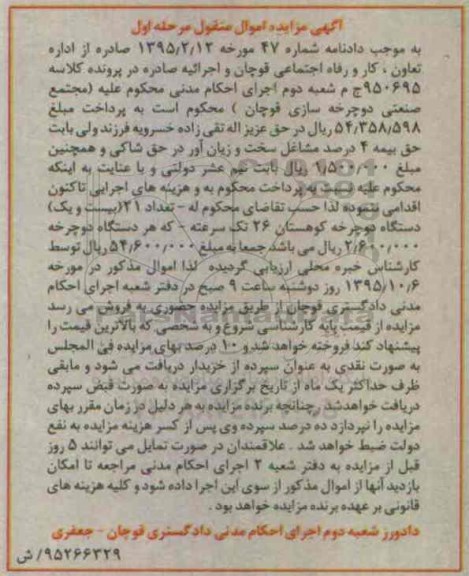 آگهی مزایده اموال منقول مرحله اول
به موجب دادنامه شماره ۴۷ مورخه ۱۳۹۵/۲/۱۲ صادره از اداره
تعاون ، کار و رفاه اجتماعی قوچان و اجرائیه صادره در پرونده کلاسه
۹۵۰۶۹۵ج م شعبه دوم اجرای احکام مدنی محکوم علیه (مجتمع
صنعتی دوچرخه سازی قوچان ) محکوم است به پرداخت مبلغ
۵۴/۳۵۸/۵۹۸ ریال در حق عزیز اله تقی زاده خسرویه فرزند ولی بابت
حق بیمه ۴ درصد مشاغل سخت و زیان آور در حق شاکی و همچنین
مبلغ ۱/۵۰۰/۰۰۰ ریال بابت نیم عشر دولتی و با عنایت به اینکه
محکوم علیه نسبت به پرداخت محکوم به و هزینه های اجرایی تاکنون
اقدامی ننموده لذا حسب تقاضای محکوم له - تعداد ۲۱(بیست و یک)
دستگاه دوچرخه کوهستان ۲۶ تک سرعته - که هر دستگاه دوچرخه
۲/۶۰۰/۰۰۰ ریال می باشد جمعا به مبلغ ۵۴/۶۰۰/۰۰۰ ریال توسط
کارشناس خبره محلی ارزیابی گردیده لذا اموال مذکور در مورخه
۱۳۹۵/۱۰/۶ روز دوشنبه ساعت ۹ صبح در دفتر شعبه اجرای احکام
مدنی دادگستری قوچان از طریق مزایده حضوری به فروش می رسد
مزایده از قیمت پایه کارشناسی شروع و به شخصی که بالاترین قیمت را
پیشنهاد کند فروخته خواهد شد و ۱۰ درصد بهای مزایده فی المجلس
به صورت نقدی به عنوان سپرده از خریدار دریافت می شود و مابقی
ظرف حداکثر یک ماه از تاریخ برگزاری مزایده به صورت قبض سپرده
دریافت خواهدشد .چنانچه برنده مزایده به هر دلیل در زمان مقرر بهای
مزایده را نپردازد ده درصد سپرده وی پس از کسر هزینه مزایده به نفع
دولت ضبط خواهد شد . علاقمندان در صورت تمایل می توانند ۵ روز
قبل از مزایده به دفتر شعبه ۲ اجرای احکام مدنی مراجعه تا امکان
بازدید آنها از اموال مذکور از سوی این اجرا داده شود و کلیه هزینه های
قانونی بر عهده برنده مزایده خواهد بود .
دادورز شعبه دوم اجرای احکام مدنی دادگستری قوچان - جعفری
۹۵۲۶۶۳۲۹/ ش